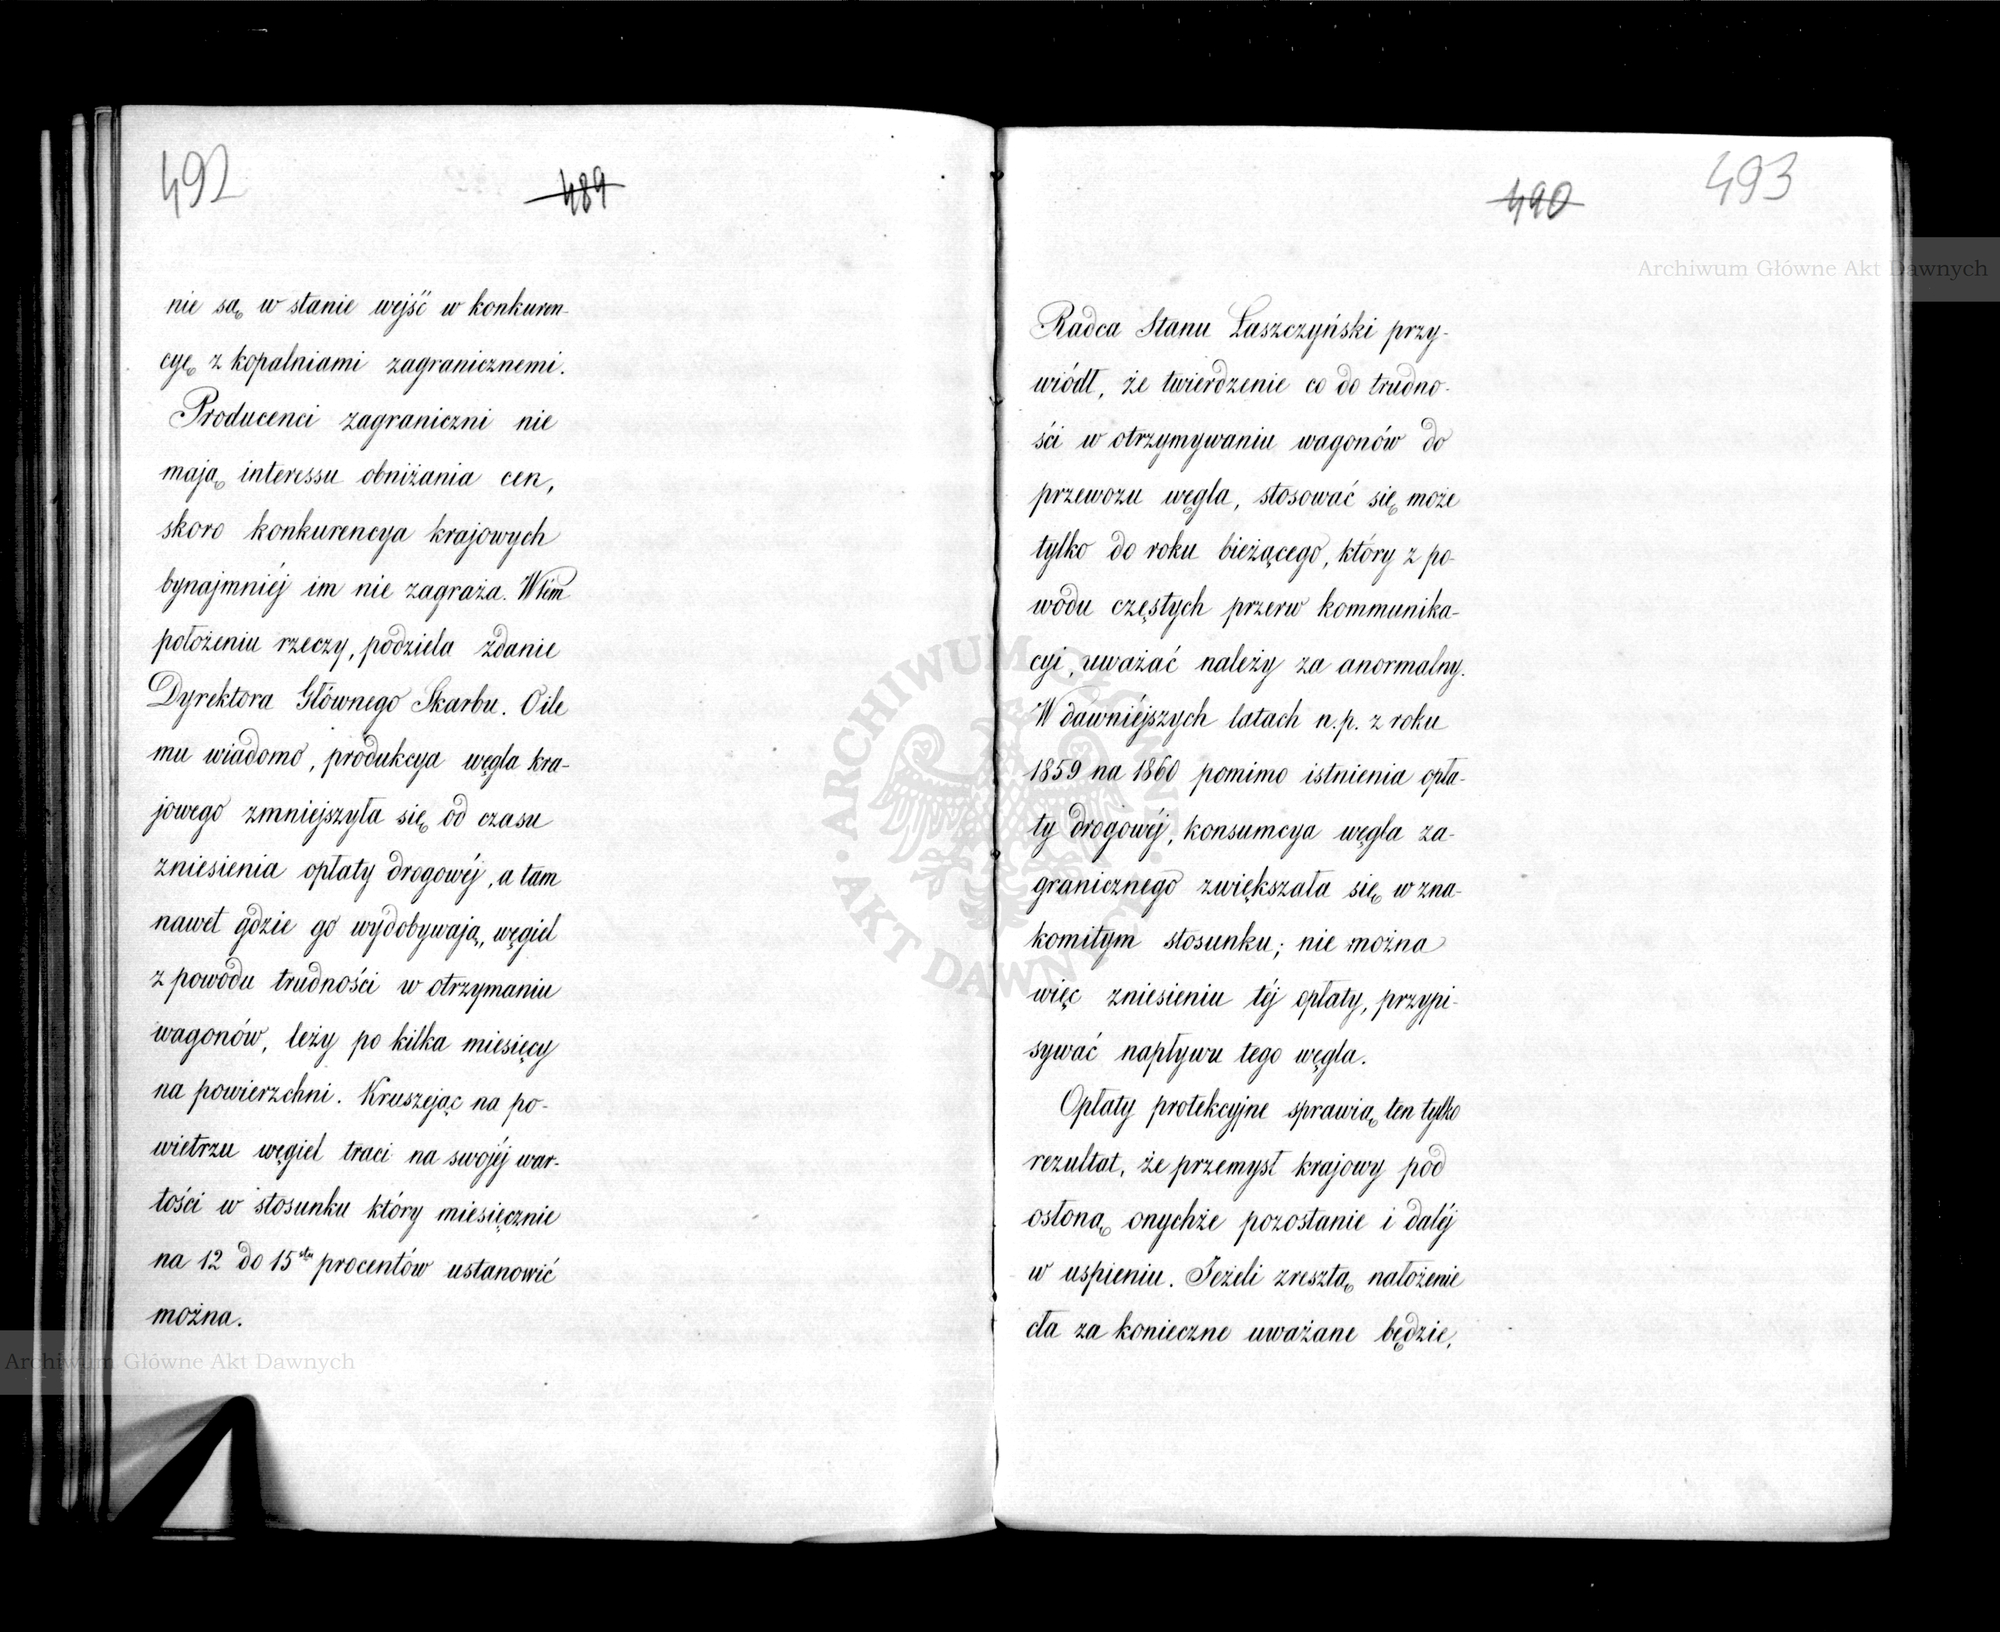 492
489
nie są w stanie wejść w konkuren-
cyę z kopalniami zagranicznemi.
Producenci zagraniczni nie
mają interessu obniżania cen,
skoro konkurencya krajowych
bynajmniéj im nie zagraża. W tém
położeniu rzeczy, podziela zdanie
Dyrektora Głównego Skarbu. O ile
mu wiadomo, produkcya węgla kra-
jowego zmniejszyła się od czasu
zniesienia opłaty drogowéj, a tam
nawet gdzie go wydobywają, węgiel
z powodu trudności w otrzymaniu
wagonów, leży po kilka miesięcy
na powierzchni. Kruszejąc na po-
wietrzu węgiel traci na swojéj war-
tości w stosunku który miesięcznie
na 12 do 15stu procentów ustanowić
można.
490
493
Radca Stanu Łaszczyński przy-
wiódł, że twierdzenie co do trudno-
ści w otrzymywaniu wagonów do
przewozu węgla, stosować się może
tylko do roku bieżącego, który z po-
wodu częstych przerw kommunika-
cyi, uważać należy za anormalny.
W dawniéjszych latach n.p. z roku
1859 na 1860 pomimo istnienia opła-
ty drogowéj, konsumcya węgla za-
granicznego zwiększała się w zna-
komitym stosunku; nie można
więc zniesieniu téj opłaty, przypi-
sywać napływu tego węgla.
Opłaty protekcyjne sprawią ten tylko
rezultat, że przemysł krajowy pod
osłoną onychże pozostanie i daléj
w uspieniu. Jeżeli zresztą nałożenie
cła za konieczne uważane będzie,
Archiwum Główne Akt Dawnych
Archiwum Główne Akt Dawnych
ARCHIWUM GŁÓWNE AKT DAWNYCH